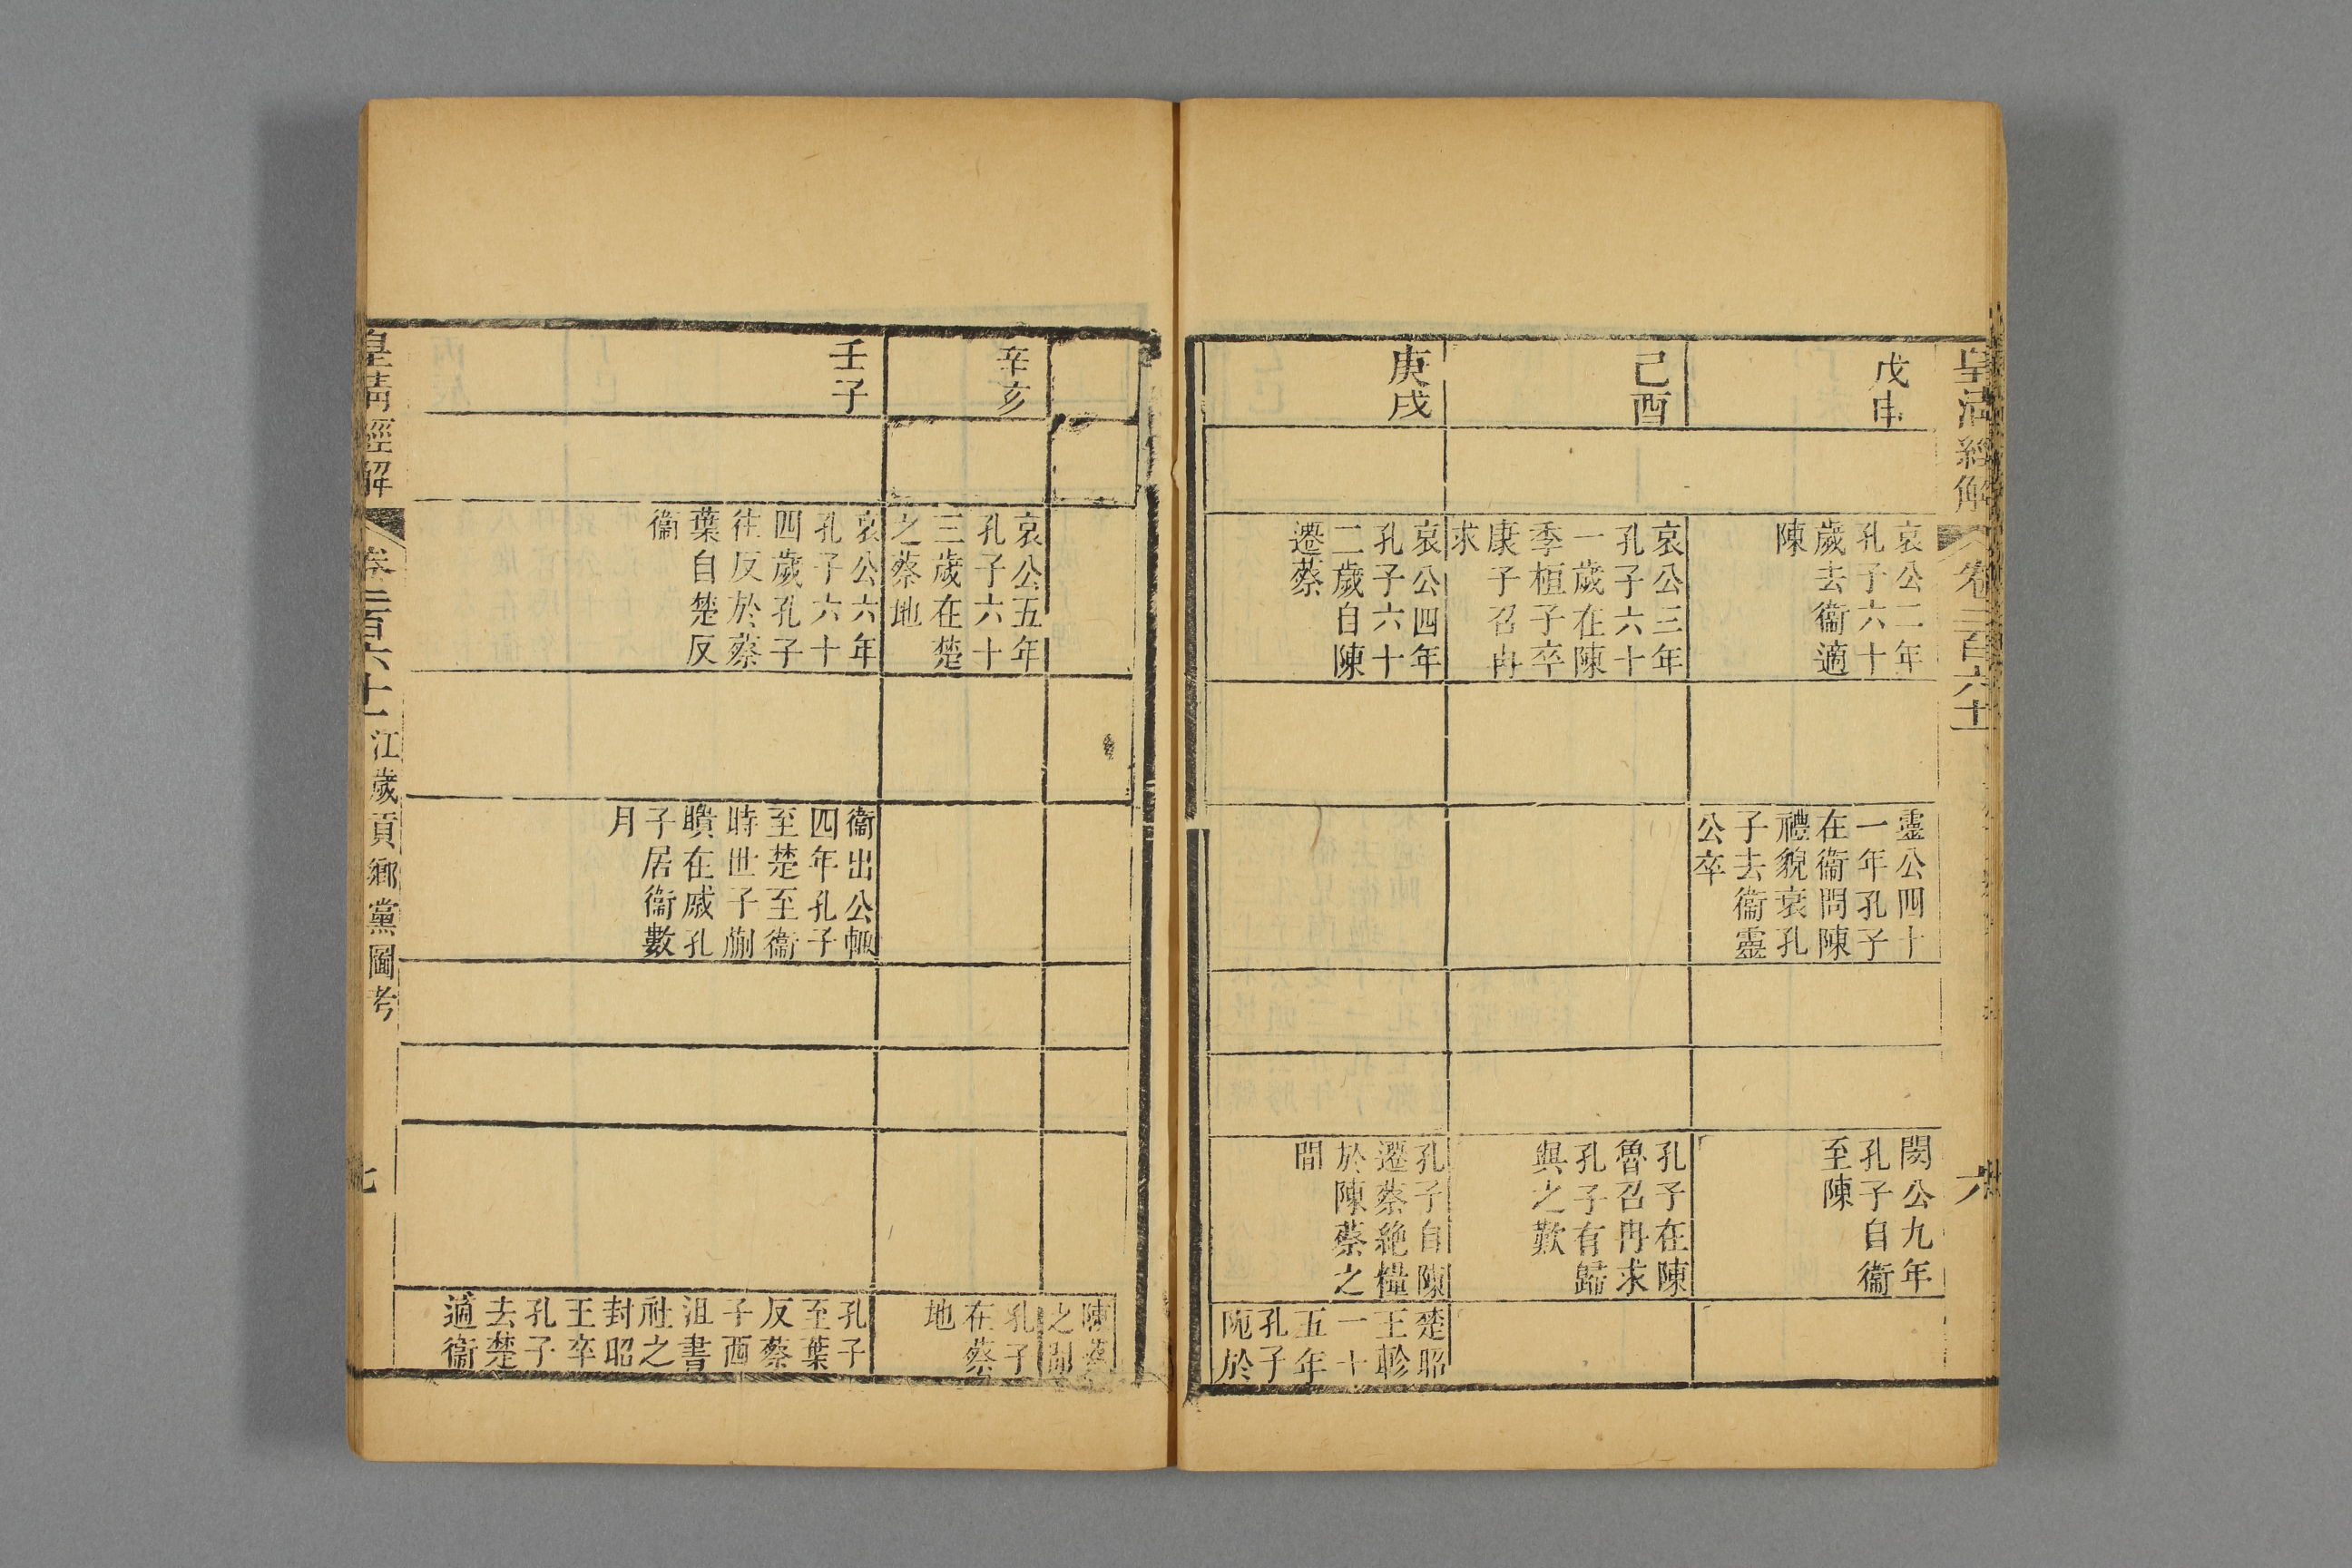 皇清經解
卷二百六十一
六
戊申
哀公二年
孔子六十
歲去衞適
陳
靈公四十
一年孔子
在衞問陳
禮貌衰孔
子去衞靈
公卒
閔公九年
孔子自衞
至陳
己酉
哀公三年
孔子六十
一歲在陳
季桓子卒
康子召冉
求
孔子在陳
魯召冉求
孔子有歸
與之歎
庚戌
哀公四年
孔子六十
二歲自陳
遷蔡
孔子自陳
遷蔡絶糧
於陳蔡之
間
楚昭
王軫
一十
五年
孔子
阨於
陳蔡
之間
辛亥
哀公五年
孔子六十
三歲在楚
之蔡地
孔子
在蔡
地
壬子
哀公六年
孔子六十
四歲孔子
往反於蔡
葉自楚反
衞
衞出公輒
四年孔子
至楚至衞
時世子蒯
聵在戚孔
子居衞數
月
孔子
至葉
反蔡
子西
沮書
社之
封昭
王卒
孔子
去楚
適衞
皇清經解
卷二百六十一
江歲貢鄉黨圖考
七